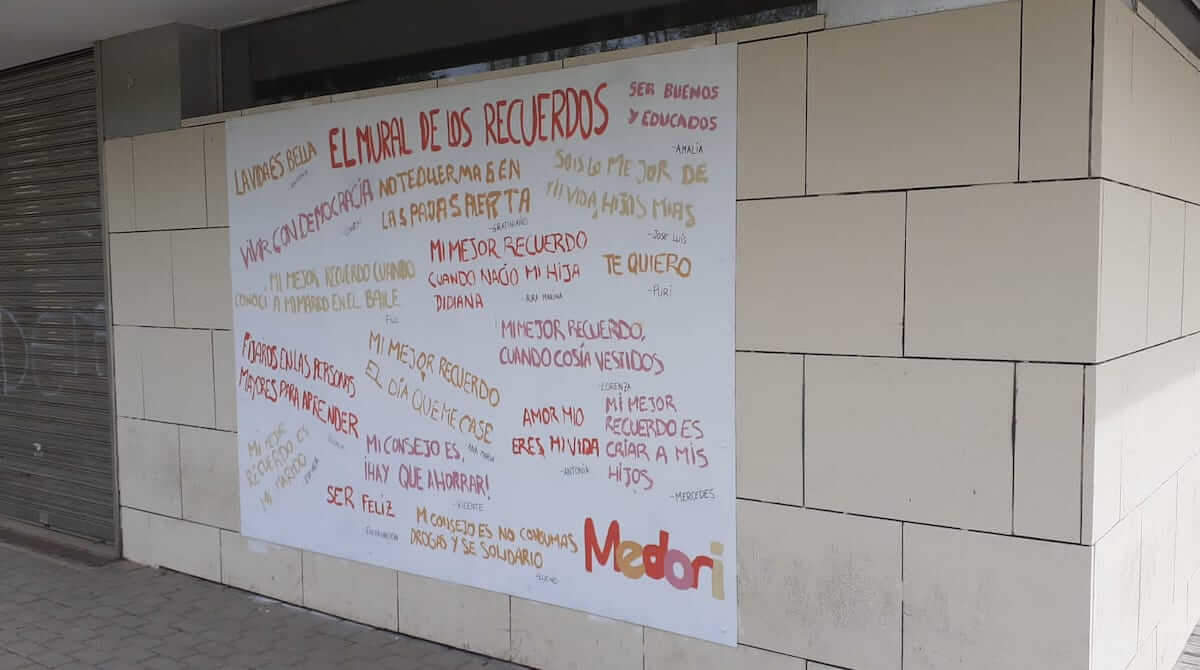 EL MURAL DE LOS RECUERDOS
SER BUENOS
Y EDUCADOS
-AMALIA
LA VIDA ES BELLA
VIVIR CON DEMOCRACIA
NO TE DUERMAS EN
LAS PAJAS ALERTA
-GRATINIANO
SOIS LO MEJOR DE
MI VIDA, HIJOS MIAS
-JOSE LUIS
MI MEJOR RECUERDO CUANDO
CONOCI A MI MARIDO EN EL BAILE
FILI
MI MEJOR RECUERDO
CUANDO NACIO MI HIJA
DIDIANA
TE QUIERO
-PURI
MI MEJOR RECUERDO,
CUANDO COSÍA VESTIDOS
-LORENZA
FIJAROS EN LAS PERSONAS
MAYORES PARA APRENDER
MI MEJOR RECUERDO
EL DÍA QUE ME CASE
ANA MARIA
AMOR MIO
ERES, MI VIDA
-ANTONIA
MI MEJOR
RECUERDO ES
CRIAR A MIS
HIJOS
-MERCEDES
MI MEJOR
RECUERDO ES
MI MARIDO
MI CONSEJO ES,
¡HAY QUE AHORRAR!
-VICENTE
SER FELIZ
-ENCARNACIÓN
MI CONSEJO ES NO CONSUMAS
DROGAS Y SE SOLIDARIO
Medori